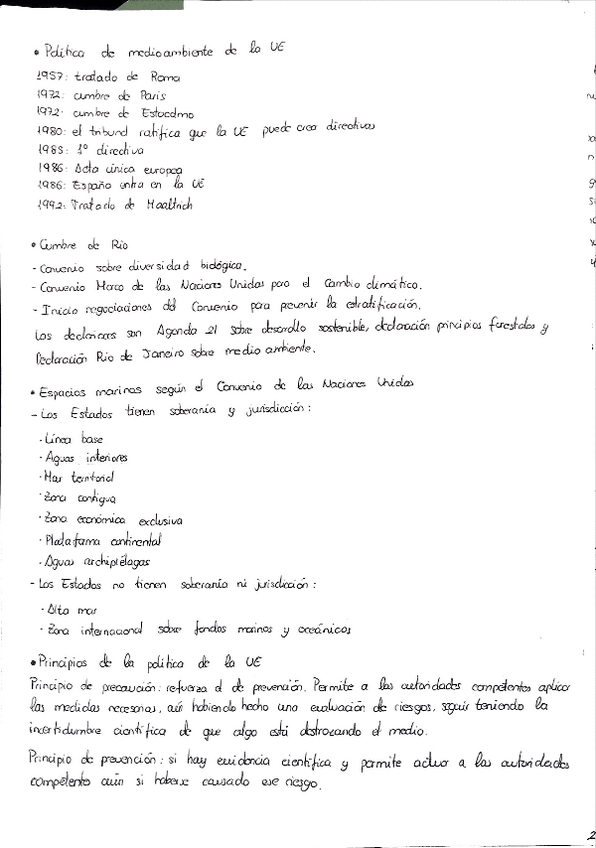 • Política de medioambiente de la UE
1957: tratado de Roma
1972: cumbre de París
1972: cumbre de Estocolmo
1980: el tribunal ratifica que la UE puede crear directivas
1985: 1º directiva
1986: Acta única europea
1986: España entra en la UE
1992: Tratado de Maaltrich
• Cumbre de Río
- Convenio sobre diversidad biológica.
- Convenio Marco de las Naciones Unidas para el cambio climático.
- Inicia negociaciones del Convenio para prevenir la estratificación.
Las declaraciones son Agenda 21 sobre desarrollo sostenible, declaración principios forestales y
Declaración Río de Janeiro sobre medio ambiente.
• Espacios marinos según el Convenio de las Naciones Unidas
- Los Estados tienen soberanía y jurisdicción:
· Línea base
· Aguas interiores
· Mar territorial
· Zona contigua
· Zona económica exclusiva
· Plataforma continental
· Aguas archipiélagas
- Los Estados no tienen soberanía ni jurisdicción:
· Alta mar
· Zona internacional sobre fondos marinos y oceánicos
• Principios de la política de la UE
Principio de precaución: refuerza el de prevención. Permite a las autoridades competentes aplicar
las medidas necesarias, aún habiendo hecho una evaluación de riesgos, seguir teniendo la
incertidumbre científica de que algo está destrozando el medio.
Principio de prevención: si hay evidencia científica y permite actuar a las autoridades
competente aún si haberse causado ese riesgo.
2